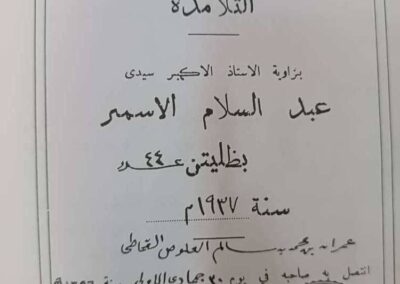 التلامذة
بزاوية الاستاذ الاكبر سيدى
عبد السلام الاسمر
بظليتن عدد ٤٤
سنة ١٩٣٧م
عمران بن محمد بن سالم العلوص القحاطى
انتصل به صاحبه فى يوم ٣٠ جمادى الاولى سنة